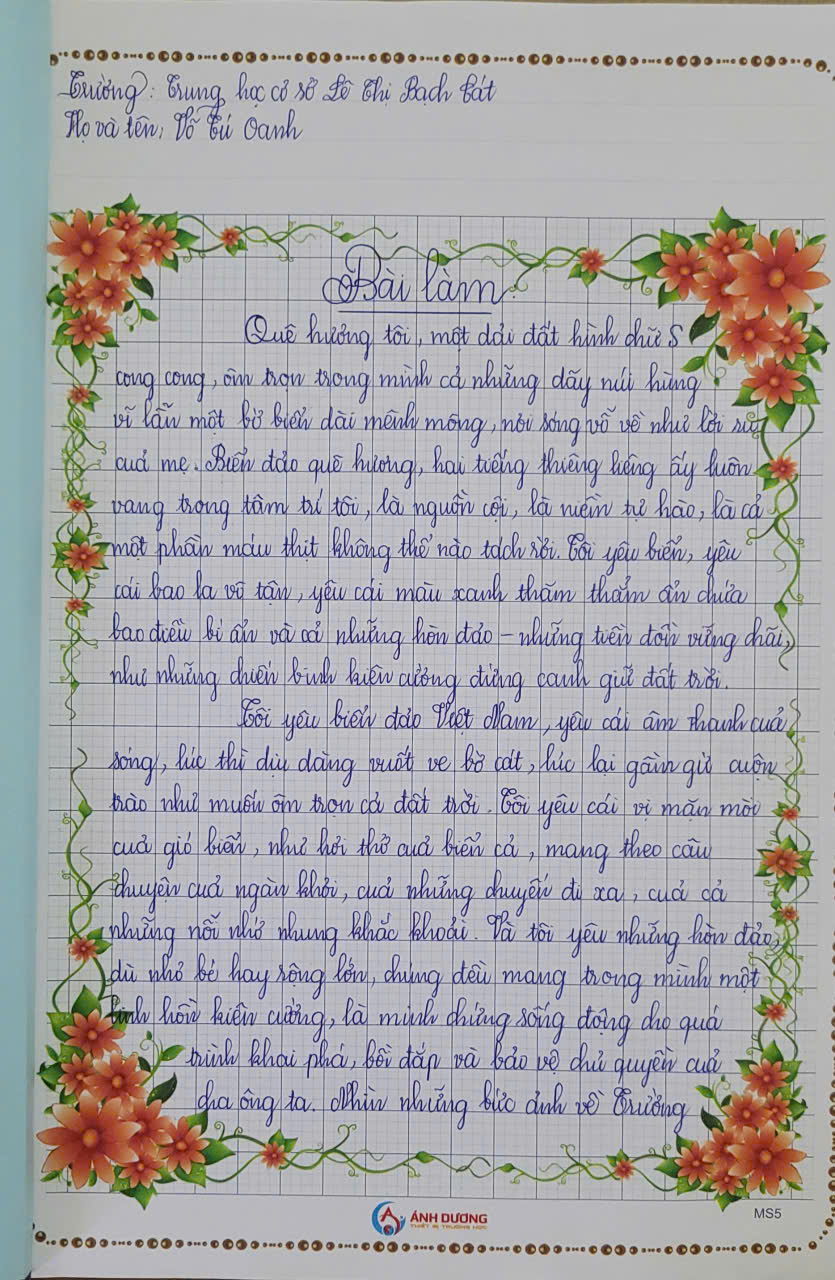 Trường: Trung học cơ sở Lê Thị Bạch Cát
Họ và tên: Võ Tú Oanh
Bài làm:
Quê hương tôi, một dải đất hình chữ S
cong cong, ôm trọn trong mình cả những dãy núi hùng
vĩ lẫn một bờ biển dài mênh mông, nơi sóng vỗ về như lời ru
của mẹ. Biển đảo quê hương, hai tiếng thiêng liêng ấy luôn
vang trong tâm trí tôi, là nguồn cội, là niềm tự hào, là cả
một phần máu thịt không thể nào tách rời. Tôi yêu biển, yêu
cái bao la vô tận, yêu cái màu xanh thăm thẳm ẩn chứa
bao điều bí ẩn và cả những hòn đảo – những tiền đồn vững chãi,
như những chiến binh kiên cường đứng canh giữ đất trời.
Tôi yêu biển đảo Việt Nam, yêu cái âm thanh của
sóng, lúc thì dịu dàng vuốt ve bờ cát, lúc lại gầm gừ cuộn
trào như muốn ôm trọn cả đất trời. Tôi yêu cái vị mặn mòi
của gió biển, như hơi thở của biển cả, mang theo câu
chuyện của ngàn khơi, của những chuyến đi xa, của cả
những nỗi nhớ nhung khắc khoải. Và tôi yêu những hòn đảo,
dù nhỏ bé hay rộng lớn, chúng đều mang trong mình một
linh hồn kiên cường, là minh chứng sống động cho quá
trình khai phá, bồi đắp và bảo vệ chủ quyền của
cha ông ta. Nhìn những bức ảnh về Trường
ÁNH DƯƠNG
THIẾT BỊ TRƯỜNG HỌC
MS5